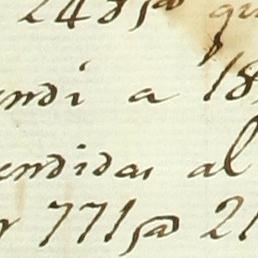 248 p.
endi a 18
endidas al
771 p. 21